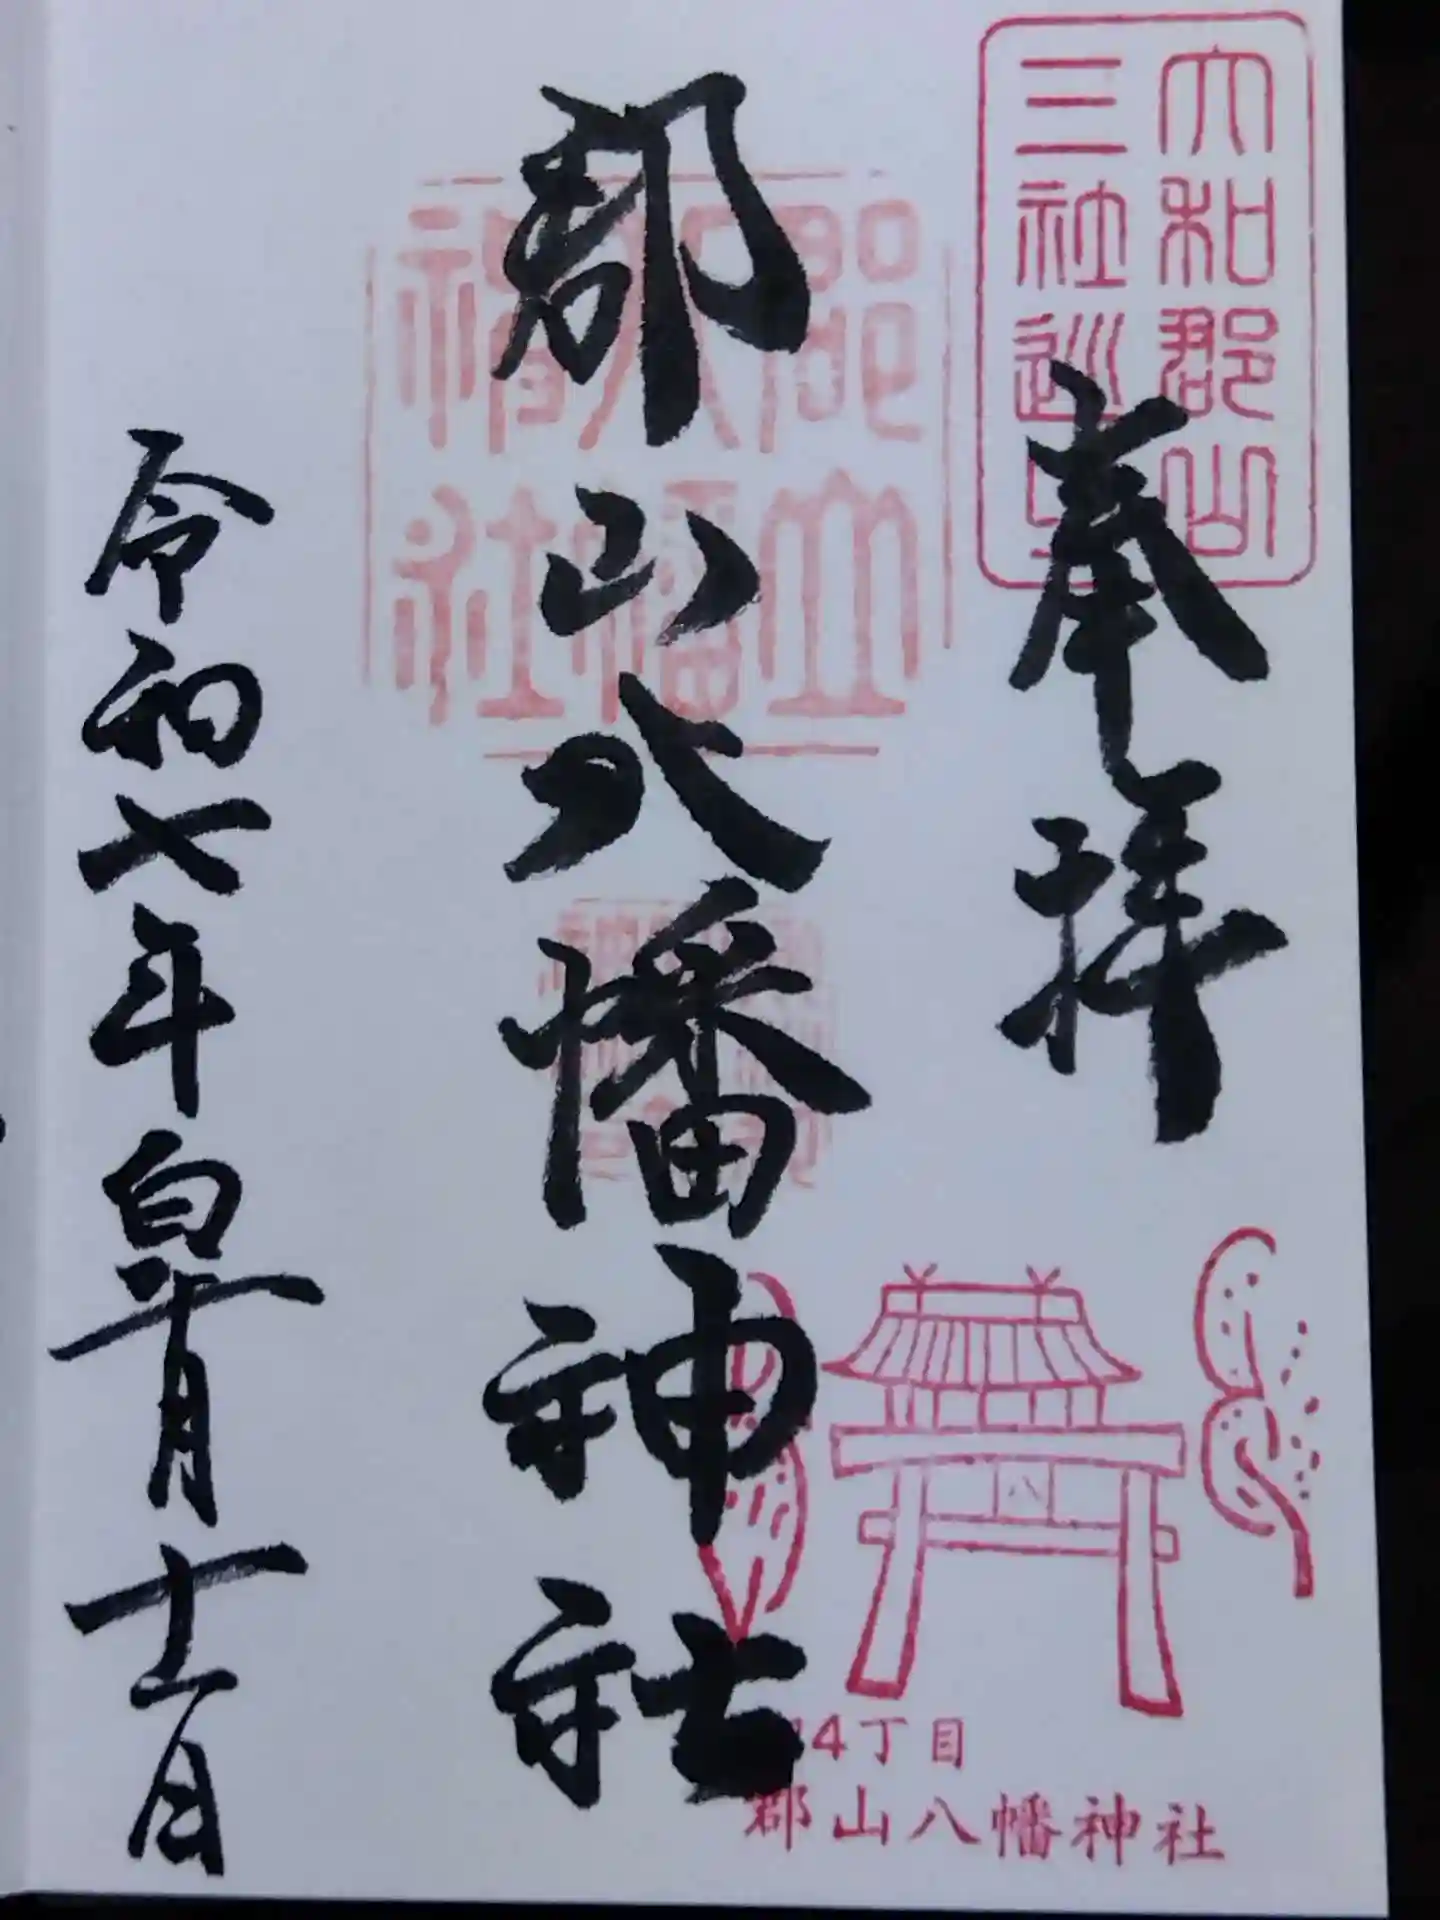 大和郡山
三社巡
奉拝
郡山
八幡
神社
郡山八幡神社
令和七年皐月十一日
4丁目
郡山八幡神社